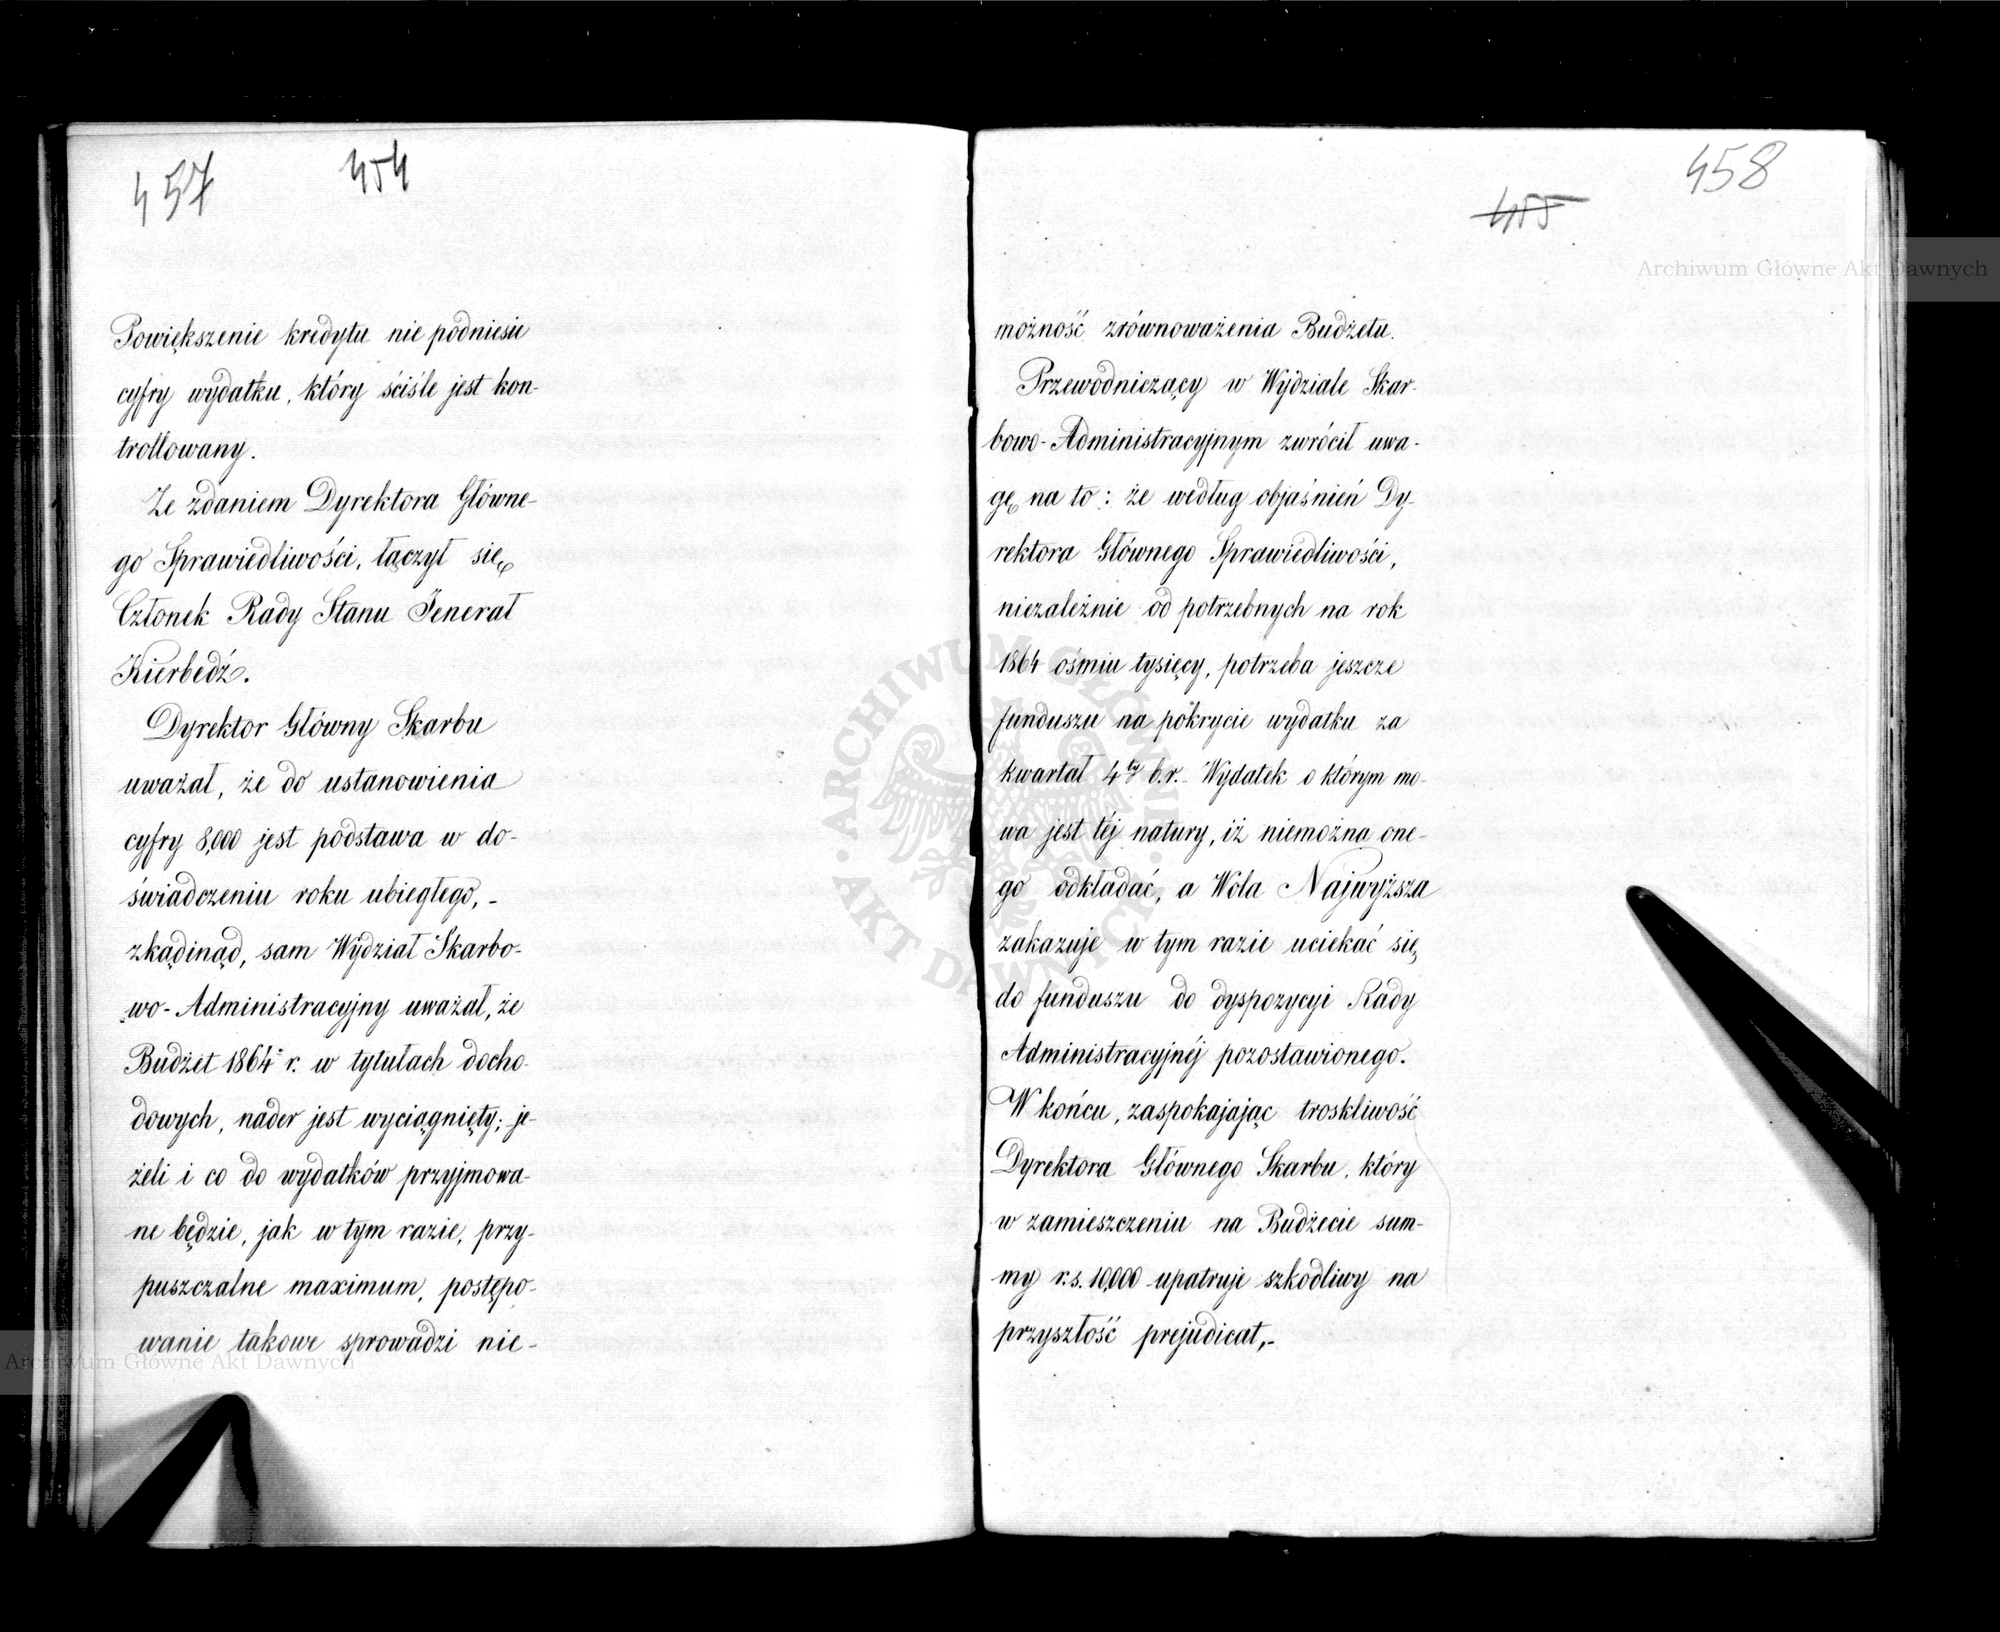 457 454
Powiększenie kredytu nie podniesie
cyfry wydatku, który ściśle jest kon-
trollowany.
Ze zdaniem Dyrektora Główne-
go Sprawiedliwości, łączył się
Członek Rady Stanu Jenerał
Kierbedź.
Dyrektor Główny Skarbu
uważał, że do ustanowienia
cyfry 8,000 jest podstawa w do-
świadczeniu roku ubiegłego, -
zkądinąd, sam Wydział Skarbo-
wo-Administracyjny uważał, że
Budżet 1864 r. w tytułach docho-
dowych, nader jest wyciągnięty; je-
żeli i co do wydatków przyjmowa-
ne będzie, jak w tym razie, przy-
puszczalne maximum, postępo-
wanie takowe sprowadzi nie-
458
455
możność zrównoważenia Budżetu.
Przewodniczący w Wydziale Skar-
bowo-Administracyjnym zwrócił uwa-
gę na to: że według objaśnień Dy-
rektora Głównego Sprawiedliwości,
niezależnie od potrzebnych na rok
1864 ośmiu tysięcy, potrzeba jeszcze
funduszu na pokrycie wydatku za
kwartał 4ty b.r. Wydatek o którym mo-
wa jest téj natury, iż niemożna one-
go odkładać, a Wola Najwyższa
zakazuje w tym razie uciekać się
do funduszu do dyspozycyi Rady
Administracyjnéj pozostawionego.
W końcu, zaspokajając troskliwość
Dyrektora Głównego Skarbu, który
w zamieszczeniu na Budżecie sum-
my r.s. 10,000 upatruje szkodliwy na
przyszłość prejudicat,-
Archiwum Główne Akt Dawnych
Archiwum Główne Akt Dawnych
ARCHIWUM GŁÓWNE · AKT DAWNYCH ·